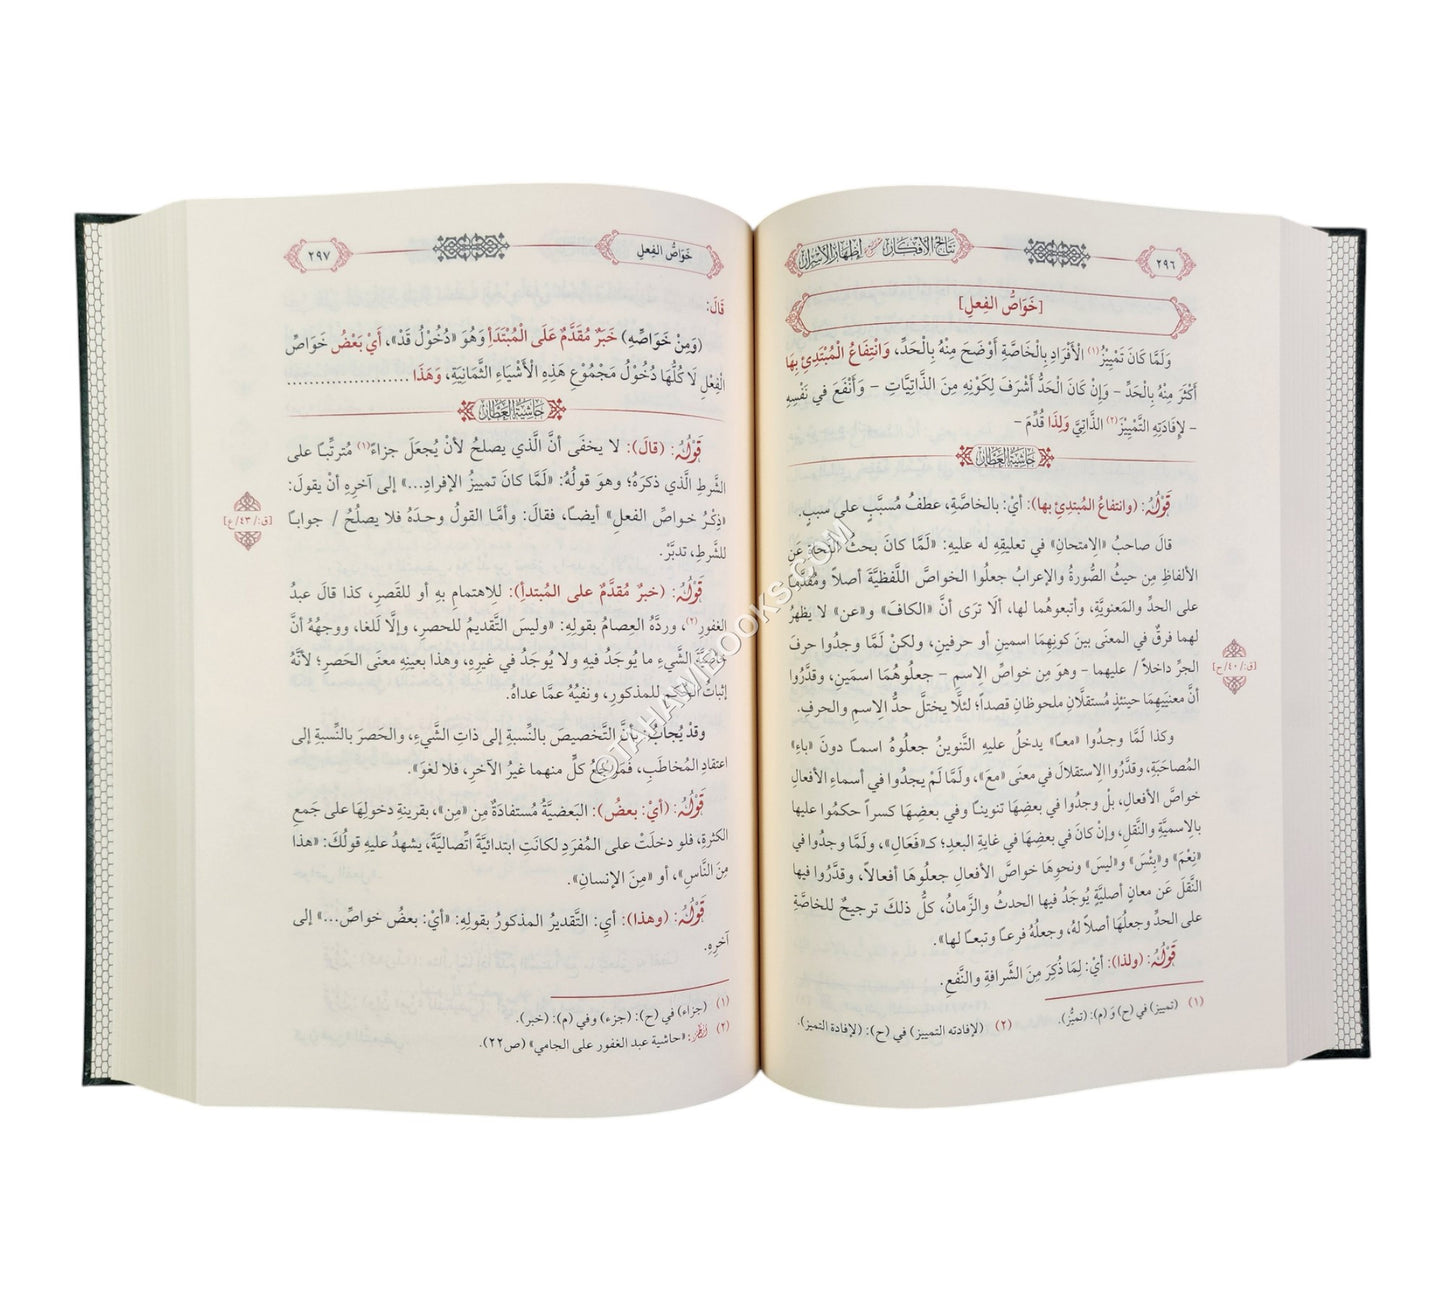 ٢٩٦
نتائج الأفكار شرح إظهار الأسرار
[خَوَاصُّ الفِعلِ]
وَلَمَّا كَانَ تَمْيِيزُ(١) الْأَفْرَادِ بِالْخَاصَّةِ أَوْضَحَ مِنْهُ بِالْحَدِّ، وَانْتِفَاعُ الْمُبْتَدِئِ بِهَا
أَكْثَرَ مِنْهُ بِالْحَدِّ – وَإِنْ كَانَ الْحَدُّ أَشْرَفَ لِكَوْنِهِ مِنَ الذَّاتِيَّاتِ – وَأَنْفَعَ فِي نَفْسِهِ
– لِإِفَادَتِهِ التَّمْيِيْزَ(٢) الذَّاتِيَّ وَلِذَا قُدِّمَ –
حاشية العطار
قَوْلُهُ: (وانتفاعُ المُبتدِئِ بها): أيْ: بالخاصَّةِ، عطفُ مُسبَّبٍ على سببٍ.
قالَ صاحبُ «الِامتحانِ» في تعليقِهِ له عليهِ: «لَمَّا كانَ بحثُ النُّحاةِ عَنِ
الألفاظِ مِن حيثُ الصُّورةُ والإعرابُ جعلُوا الخواصَّ اللَّفظيَّةَ أصلاً ومُقدَّماً
على الحدِّ والمَعنويَّةِ، وأتبعوهُما لها، ألَا ترَى أنَّ «الكافَ» و«عن» لا يظهرُ
لهما فرقٌ في المعنَى بينَ كونِهِمَا اسمينِ أو حرفينِ، ولكنْ لَمَّا وجدُوا حرفَ
الجرِّ داخلاً / عليهما – وهوَ مِن خواصِّ الِاسمِ – جعلُوهُمَا اسمَينِ، وقدَّرُوا
أنَّ معنيَيهِمَا حينئذٍ مُستقلَّانِ ملحوظانِ قصداً؛ لئلَّا يختلَّ حدُّ الِاسمِ والحرفِ.
[ق:/٤٠/ح]
وكذا لَمَّا وجدُوا «معاً» يدخلُ عليهِ التَّنوينُ جعلُوهُ اسمـاً دونَ «باءِ»
المُصاحَبَةِ، وقدَّرُوا الِاستقلالَ في معنَى «معَ»، ولَمَّا لَمْ يجدُوا في أسماءِ الأفعالِ
خواصَّ الأفعالِ، بلْ وجدُوا في بعضِهَا تنوينـاً وفي بعضِهَا كسراً حكمُوا عليها
بالِاسميَّةِ والنَّقلِ، وإنْ كانَ في بعضِهَا في غايةِ البعدِ؛ كـ«فَعَالِ»، ولَمَّا وجدُوا في
«نِعْمَ» و«بِئْسَ» و«ليسَ» ونحوِهَا خواصَّ الأفعالِ جعلُوهَا أفعالاً، وقدَّرُوا فيها
النَّقلَ عَن معانٍ أصليَّةٍ يُوجَدُ فيها الحدثُ والزَّمانُ، كلُّ ذلكَ ترجيحٌ للخاصَّةِ
على الحدِّ وجعلُهَا أصلاً لهُ، وجعلُهُ فرعـاً وتبعـاً لها».
قَوْلُهُ: (ولذا): أيْ: لِمَا ذُكِرَ مِنَ الشَّرافةِ والنَّفعِ.
(١) (تمييز) في (ح) وَ (م): (تميُّز).
(٢) (لإفادته التمييز) في (ح): (لإفادة التميز).
خَوَاصُّ الفِعلِ
٢٩٧
قَالَ:
(وَمِنْ خَوَاصِّهِ) خَبَرٌ مُقَدَّمٌ عَلَى الْمُبْتَدَأِ وَهُوَ «دُخُوْلُ قَدْ»، أَيْ بَعْضُ خَوَاصِّ
الْفِعْلِ لَا كُلُّهَا دُخُوْلُ مَجْمُوْعِ هَذِهِ الْأَشْيَاءِ الثَّمَانِيَةِ، وَهَذَا ......................
حاشية العطار
قَوْلُهُ: (قالَ): لا يخفَى أنَّ الَّذي يصلحُ لأنْ يُجعَلَ جزاءً(١) مُترتِّبـاً على
الشَّرطِ الَّذي ذكرَهُ؛ وهوَ قولُهُ: «لَمَّا كانَ تمييزُ الإفرادِ...» إلى آخرِهِ أنْ يقولَ:
«ذِكْرُ خواصِّ الفعلِ» أيضـاً، فقالَ: وأمَّا القولُ وحدَهُ فلا يصلحُ / جوابـاً
للشَّرطِ، تدبَّرْ.
[ق:/٤٣/ع]
قَوْلُهُ: (خبرٌ مُقدَّمٌ على المُبتدأِ): للِاهتمامِ بهِ أو للقَصرِ، كذا قالَ عبدُ
الغفورِ(٢)، وردَّهُ العِصامُ بقولِهِ: «وليسَ التَّقديمُ للحصرِ، وإلَّا لَلغا، ووجهُهُ أنَّ
خاصَّةَ الشَّيءِ ما يُوجَدُ فيهِ ولا يُوجَدُ في غيرِهِ، وهذا بعينِهِ معنَى الحَصرِ؛ لأنَّهُ
إثباتُ للمذكورِ، ونفيُهُ عمَّا عداهُ.
وقدْ يُجابُ: بأنَّ التَّخصيصَ بالنِّسبةِ إلى ذاتِ الشَّيءِ، والحَصرَ بالنِّسبةِ إلى
اعتقادِ المُخاطَبِ، فَمَرجِعُ كلٍّ منهما غيرُ الآخرِ، فلا لغوَ».
قَوْلُهُ: (أيْ: بعضُ): البَعضيَّةُ مُستفادَةٌ مِن «مِن»، بقرينةِ دخولِهَا على جَمعِ
الكثرةِ، فلو دخلَتْ على المُفرَدِ لكانَتِ ابتدائيَّةً اتِّصاليَّةً، يشهدُ عليهِ قولُكَ: «هذا
مِنَ النَّاسِ»، أو «مِنَ الإنسانِ».
قَوْلُهُ: (وهذا): أيِ: التَّقديرُ المذكورُ بقولِهِ: «أيْ: بعضُ خواصِّ...» إلى
آخرِهِ.
(١) (جزاء) في (ح): (جزء) وفي (م): (خبر).
(٢) انظر: «حاشية عبد الغفور على الجامي» (ص٢٢).
© TAHAMIBOOKS.COM